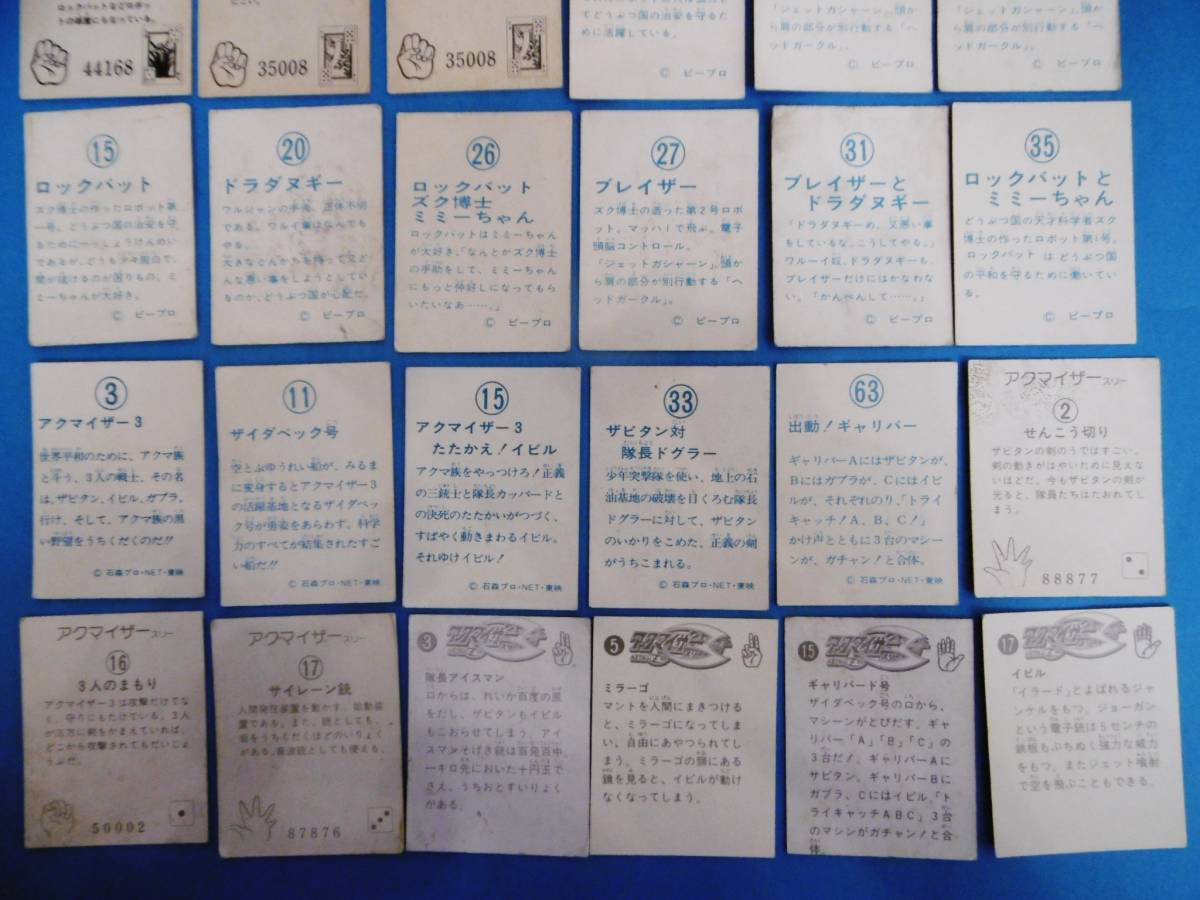 ロックバットなどロボッ
トの強敵にもなっている。
44168
35008
35008
てどうぶつ国の治安を守るた
めに活躍している。
© ピープロ
「ジェットガシャーン」、頭か
ら肩の部分が別行動する「ヘ
ッドガークル」。
© ピープロ
「ジェットガシャーン」、頭か
ら肩の部分が別行動する「ヘ
ッドガークル」。
© ピープロ
15
ロックバット
ズク博士の作ったロボット第
一号。どうぶつ国の治安を守
るために一っしょうけんめい
であるが、どうも少々
間が抜けるのが困りもの。ミ
ミーちゃんが大好き。
© ピープロ
20
ドラダヌギー
ワルジャンの手先。正体不明
である。マルイ事はなんでも
やる。
大きなどんかちを持って又ど
んな悪い事をしようとしてい
るのか、どうぶつ国が心配だ。
© ピープロ
26
ロックバット
ズク博士
ミミーちゃん
ロックバットはミミーちゃん
が大好き、「なんとかズク博士
の手助をして、ミミーちゃん
にもっと仲好しになってもら
いたいなあ……。」
© ピープロ
27
ブレイザー
ズク博士の造った第2号ロボ
ット。マッハ1で飛ぶ。電子
頭脳コントロール。
「ジェットガシャーン」、頭か
ら肩の部分が別行動する「ヘ
ッドガークル」。
© ピープロ
31
ブレイザーと
ドラダヌギー
「ドラダヌギーめ、又悪い事
をしているな。こうしてやる。」
ワルーイ奴、ドラダヌギーも、
ブレイザーだけにはかなわな
い。「かんべんして……。」
© ピープロ
35
ロックバットと
ミミーちゃん
どうぶつ国の天才科学者ズク
博士の作ったロボット第1号。
ロックバット は どうぶつ国
の平和を守るために働いてい
る。
© ピープロ
3
アクマイザー3
世界平和のために、アクマ族
と斗う、3人の戦士、その名
は、ザビタン、イビル、ガブラ。
行け、そして、アクマ族の黒
い野望をうちくだくのだ!!
© 石森プロ・NET・東映
11
ザイダベック号
空とぶゆうれい船が、みるま
に変身するとアクマイザー3
の活躍基地となるザイダベッ
ク号が勇姿をあらわす。科学
力のすべてが結集されたすご
い船だ!!
© 石森プロ・NET・東映
15
アクマイザー3
たたかえ!イビル
アクマ族をやっつけろ!正義
の三銃士と隊長カッパードと
の決死のたたかいがつづく、
すばやく動きまわるイビル。
それゆけイビル!
© 石森プロ・NET・東映
33
ザビタン対
隊長ドグラー
少年突撃隊を使い、地上の石
油基地の破壊を目くろむ隊長
ドグラーに対して、ザビタン
のいかりをこめた、正義の剣
がうちこまれる。
© 石森プロ・NET・東映
63
出動!ギャリバー
ギャリバーAにはザビタンが、
Bにはガブラが、Cにはイビ
ルが、それぞれのり、「トライ
キャッチ!A、B、C!」
かけ声とともに3台のマシー
ンが、ガチャン!と合体。
© 石森プロ・NET・東映
アクマイザースリー
2
せんこう切り
ザビタンの剣のうではすごい。
剣の動きがはやいために見えな
いほどだ。今もザビタンの剣が
光ると、隊員たちはたおれてし
まう。
88877
アクマイザースリー
16
3人のまもり
アクマイザー3は攻撃だけでな
く、守りにもたけている。3人
が三方に剣をかまえていれば、
どこから攻撃されてもだいじょ
うぶだ。
50002
アクマイザースリー
17
サイレーン銃
人間発狂装置を動かす、始動装
置である。また、銃としても、
堀をうちくだくほどのいりょく
がある。音波銃としても使える。
87876
3
アクマイザー
隊長アイスマン
口からは、れいか百度の風
をだし、ザビタンもイビル
もこおらせてしまう。アイ
スマンそげき銃は百発百中
一キロ先においた十円玉で
さえ、うちおとすいりょく
がある。
5
アクマイザー
ミラーゴ
マントを人間にまきつける
と、ミラーゴになってしま
い、自由にあやつられてし
まう。ミラーゴの頭にある
鏡を見ると、イビルが動け
なくなってしまう。
15
アクマイザー
ギャリバード号
ザイダベック号の口から、
マシーンがとびだす。ギャ
リバー「A」「B」「C」の
3台だ!ギャリバーAにザ
ビタン。ギャリバーBに
ガブラ、Cにはイビル。「ト
ライキャッチABC」3台
のマシンがガチャン!と合
体。
17
アクマイザー
イビル
「イラード」とよばれるジャ
ンケルをもつ。ジョーガン
という電子銃は5センチの
鉄板もぶちぬく強力な威力
をもつ。またジェット噴射
で空を飛ぶこともできる。